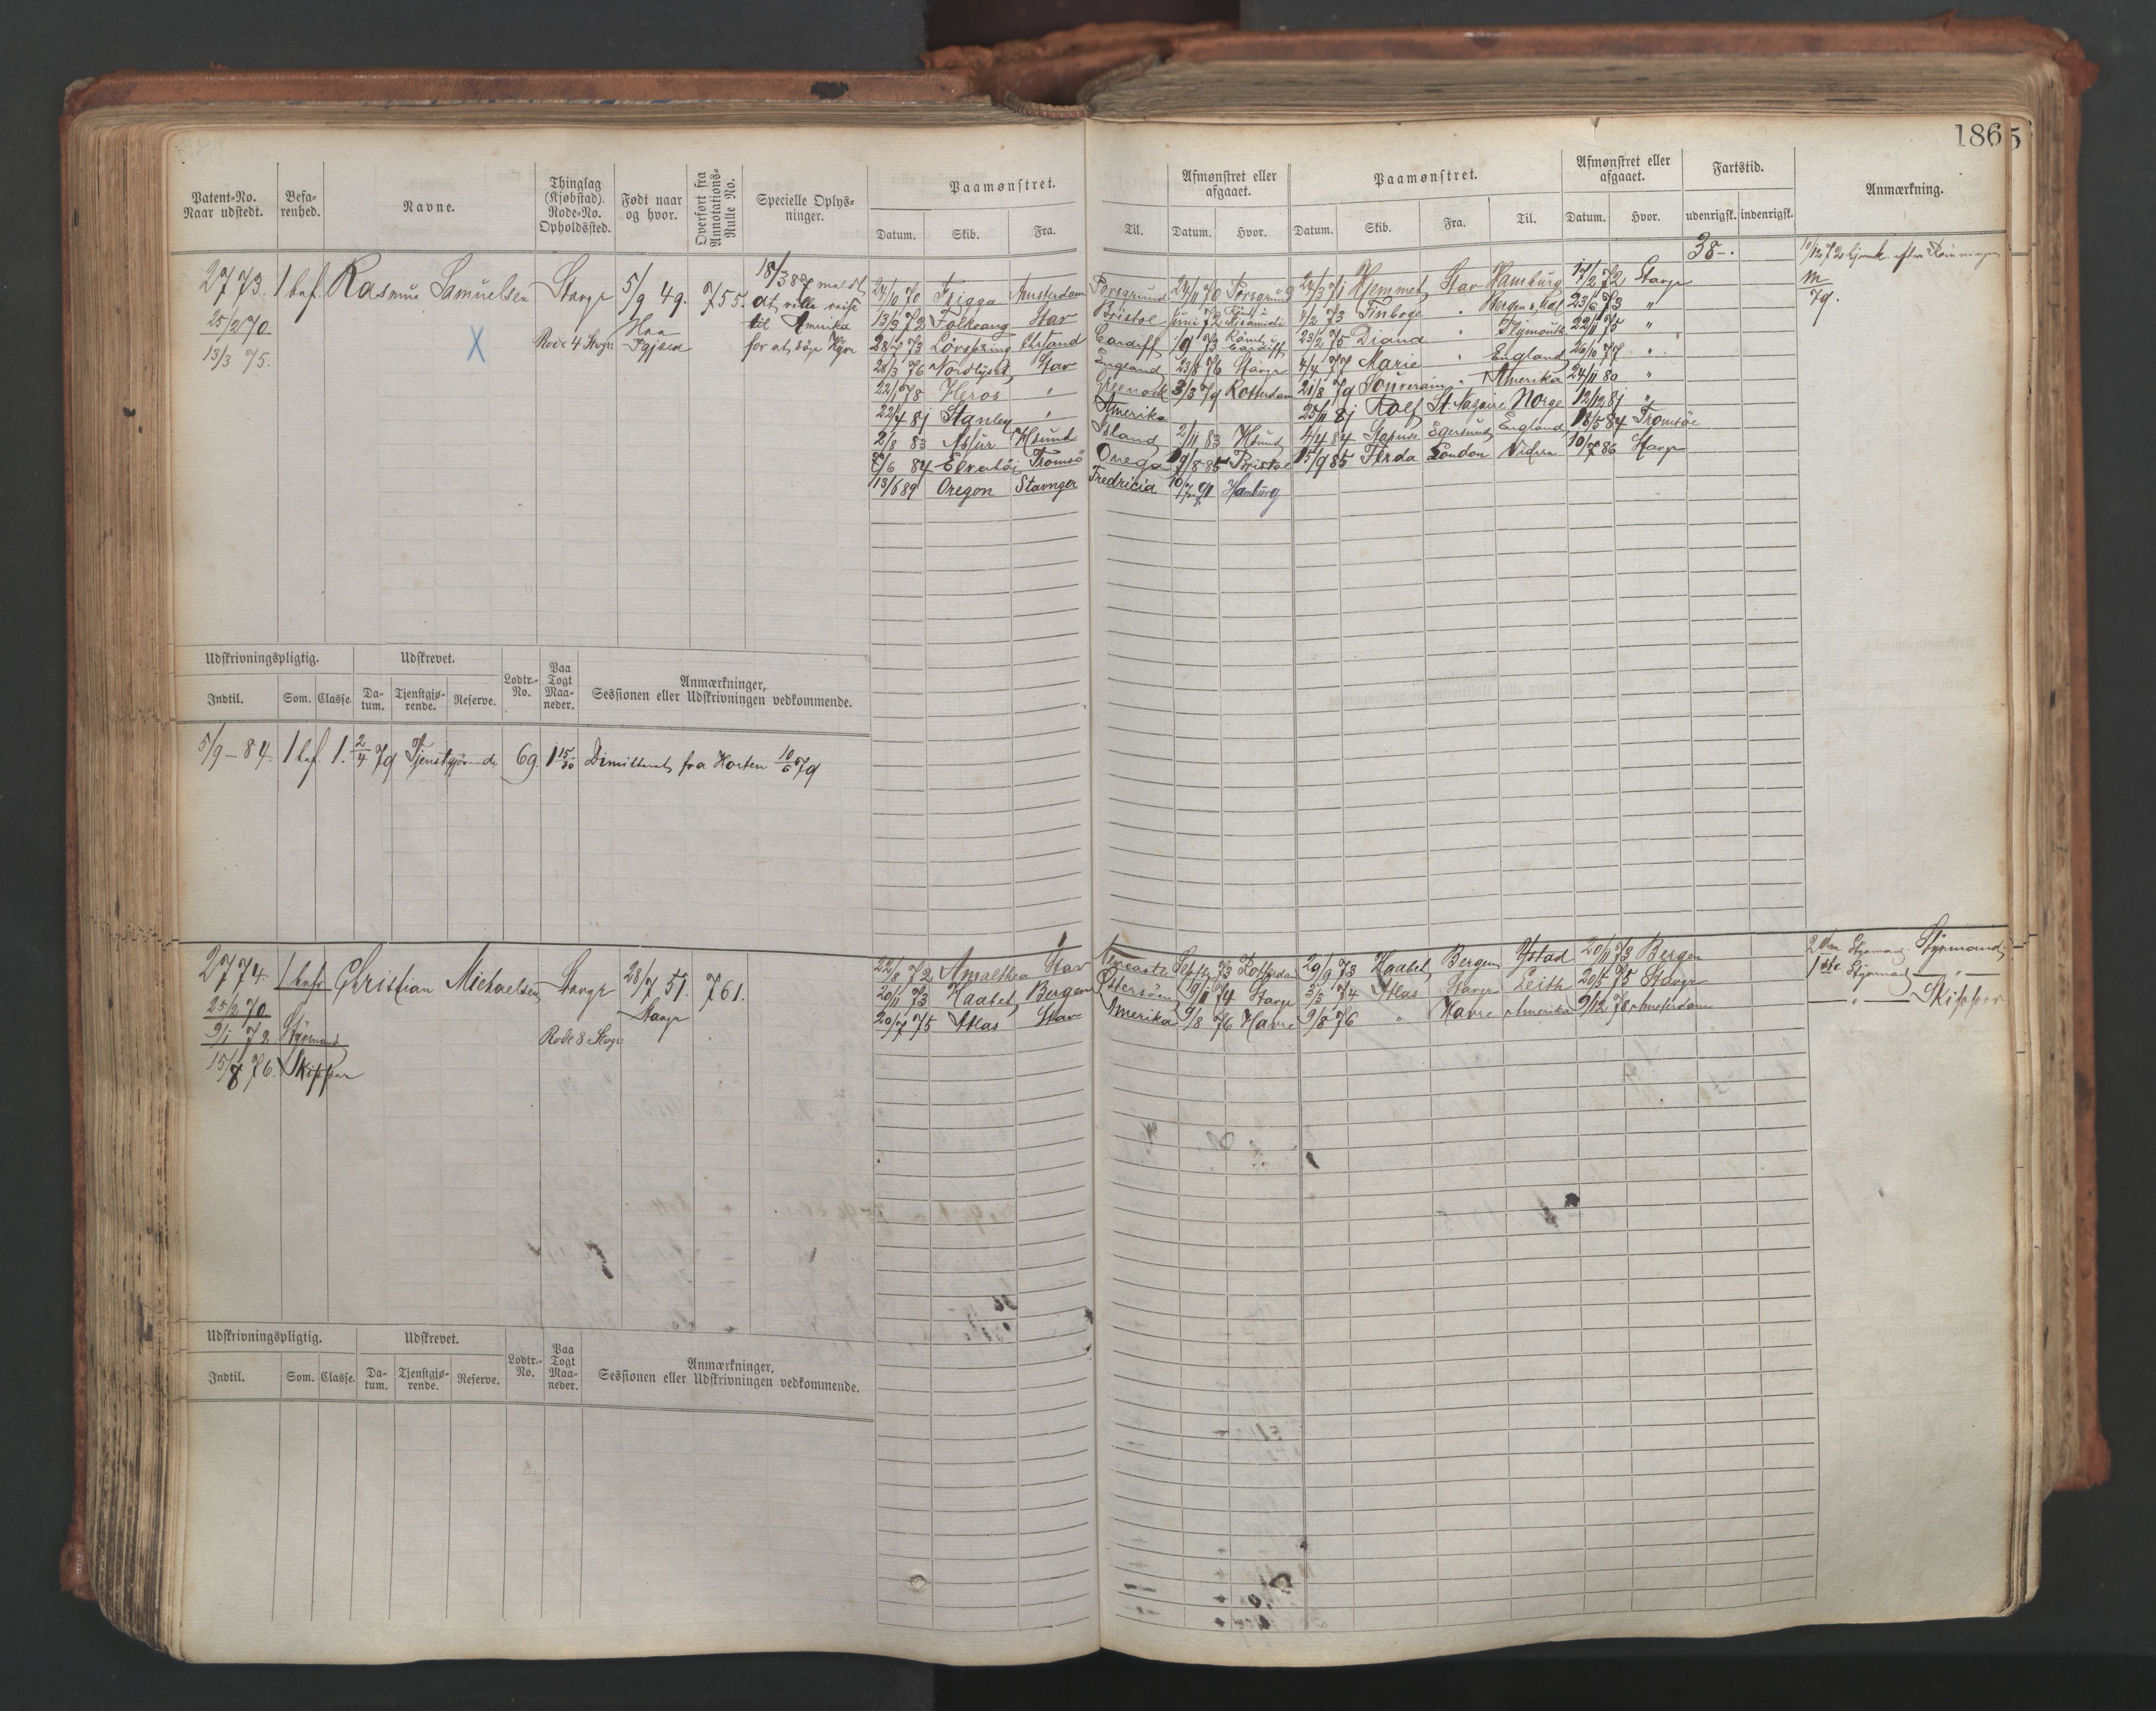 1865
Patent-No. Naar udstedt. Befa-renhed. Navne. Thinglag (Kjøbstad). Rode-No. Opholdssted. Født naar og hvor. Overført fra Annotations-Rulle No. Specielle Oplys-ninger. Paamønstret. Afmønstret eller afgaaet. Paamønstret. Afmønstret eller afgaaet. Fartstid. Anmærkning.
Datum. Skib. Fra. Til. Datum. Hvor. Datum. Skib. Fra. Til. Datum. Hvor. udenrigsk. indenrigsk.
38-.
2773. 1 bef. Rasmus Samuelsen Stavgr 5/9 49. 755. 18/3 87 meldt
25/2 70. at ville reise
13/3 75. Rode 4 Stvgr til Amerika
for at søge Hyre
24/10 70 Frigga Amsterdam Porsgrund 24/11 70 Porsgrund 24/3 71 Hjemmet Stav Hamburg 17/2 72 Stavgr
13/3 72 Folkvang Stav Bristol Juni 72 4/2 73 Finboge " 23/6 73 "
28/7 73 Løvspring Chrsand Cardiff 19/ 73 Cardiff 23/2 75 Diana " Plymouth 22/11 75 "
28/3 76 Nordlyset Stav England 23/8 76 Stavgr 4/4 77 Marie " England 26/10 77 "
22/1 78 Heros " Greenock 3/3 79 Rotterdam 21/8 79 Souverain " Amerika 24/11 80 "
22/4 81 Stanley " Amerika 25/11 81 Rolf St. Nazaire Norge 12/12 81 "
2/8 83 Assur Hsund Island 2/11 83 Hsund 4/4 84 Egersund England 18/5 84 Tromsöe
8/6 84 Elverhöi Tromsö Onega 19/8 85 Bristol 15/9 85 Ferda London 10/7 86 Stavgr
13/6 89 Oregon Stavnger Fredricia 10/7 91 Hamburg
Udskrivningspligtig. Udskrevet. Lodtr.-No. Paa Togt Maa-neder. Anmærkninger, Sessionen eller Udskrivningen vedkommende.
Indtil. Som. Classe. Da-tum. Tjenstgjø-rende. Reserve.
5/9 - 84. 1 bef. 1. 2/4 79 Tjenstgjørende 69. 1 15/30 Dimitteret fra Horten 10/6 79
2774. 1 bef. Christian Michaelsen Stavgr 28/7 51. 761.
25/2 70 Stavgr
9/1 72 Styrmand Rode 8 Stvgr
15/8 76. Skipper
22/8 72 Amalthea Stav Newcastle Septbr 73 Rotterdam 29/9 73 Haabet Bergen Ystad 20/11 73 Bergen 2den Styrmand. Styrmand.
20/11 73 Haabet Bergen Østersöen 19/11 74 Stavgr 3/3 74 Atlas Stavgr Leith 20/5 75 Stavgr 1ste Styrmand — " —
20/7 75 Atlas Stav Amerika 9/8 76 Havre 9/8 76 " Havre Amerika 9/12 78 Amsterdam — " — Skipper
Udskrivningspligtig. Udskrevet. Lodtr.-No. Paa Togt Maa-neder. Anmærkninger, Sessionen eller Udskrivningen vedkommende.
Indtil. Som. Classe. Da-tum. Tjenstgjø-rende. Reserve.